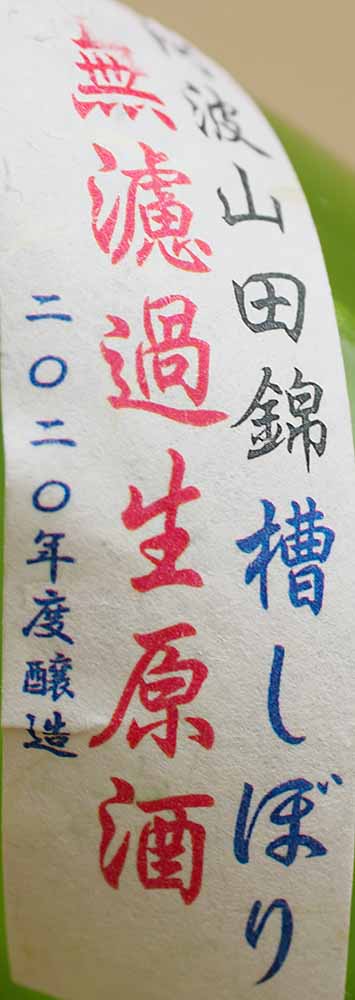 阿波山田錦槽しぼり
無濾過生原酒
二〇二〇年度醸造